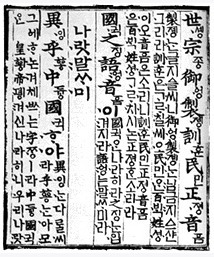 世솅宗종御ᅌᅥᆼ製졩訓훈民민正졍音ᅙᅳᆷ
製졩ᄂᆞᆫ글지ᅀᅳᆯ씨니御ᅌᅥᆼ製졩ᄂᆞᆫ님금지ᅀᅳ샨
그리라訓훈은ᄀᆞᄅᆞ칠씨오民민ᄋᆞᆫ百ᄇᆡᆨ姓셩
이오音ᅙᅳᆷ은소리니訓훈民민正졍音ᅙᅳᆷ은
百ᄇᆡᆨ姓셩ᄀᆞᄅᆞ치시논正졍ᄒᆞᆫ소리라
國귁之징語ᅌᅥᆼ音ᅙᅳᆷ이
國귁ᄋᆞᆫ나라히라之징ᄂᆞᆫ입
겨지라語ᅌᅥᆼ는말ᄊᆞ미라
나랏말ᄊᆞ미
異잉乎ᅘᅩᆼ中듀ᇰ國귁ᄒᆞ야
異잉ᄂᆞᆫ다ᄅᆞᆯ씨
라乎ᅘᅩᆼᄂᆞᆫ아모
그ᅌᅦᄒᆞ논겨체ᄡᅳ는字ᄍᆞᆼㅣ라中듀ᇰ國귁ᄋᆞᆫ
皇ᅘᅪᇰ帝뎽겨신나라히니우리나랏